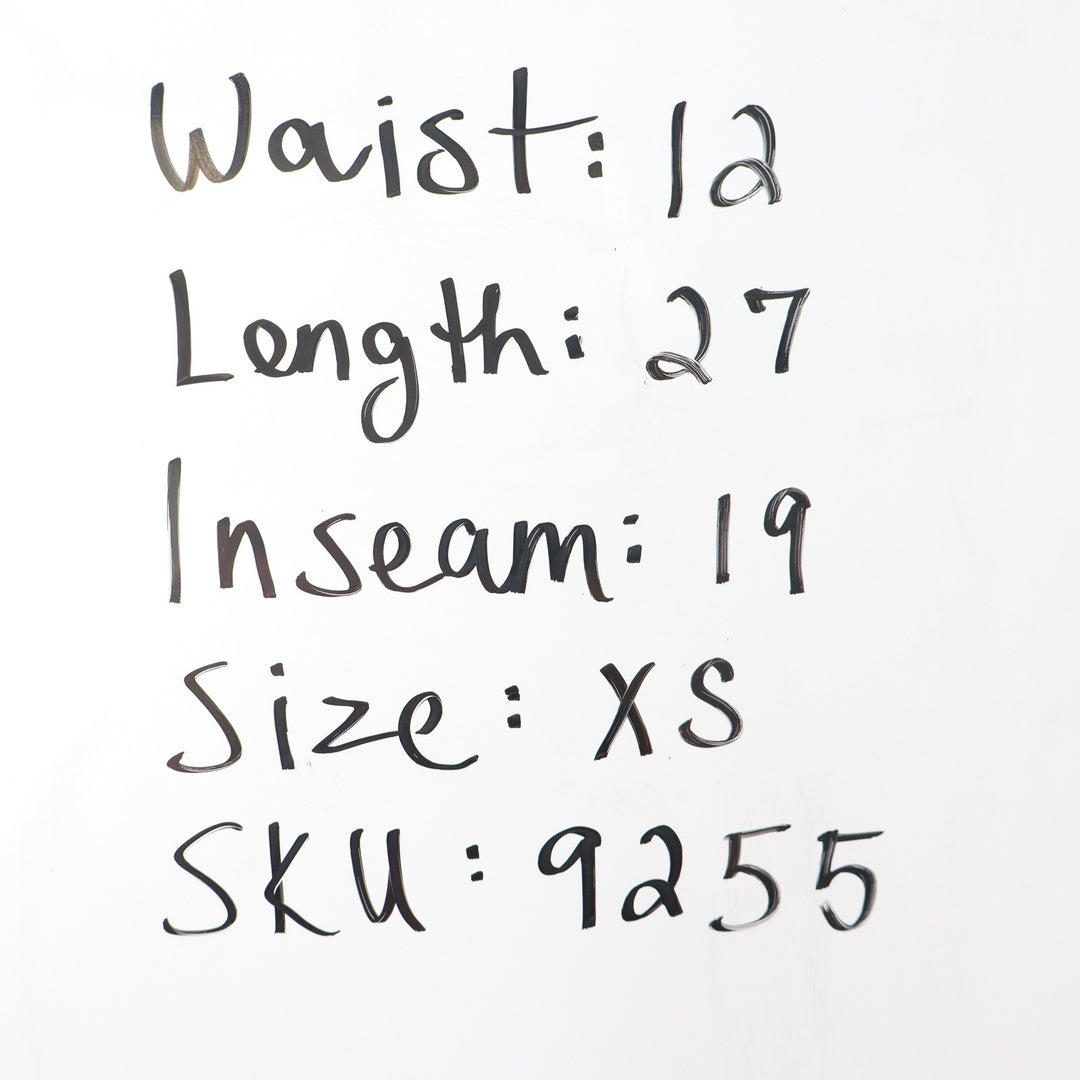 Waist: 12
Length: 27
Inseam: 19
Size: XS
SKU: 9255